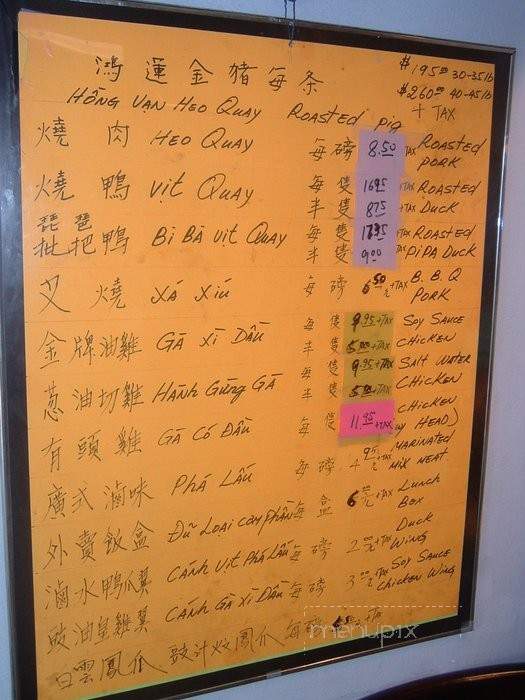 鴻運金豬每条 $195.00 30-35lb
HỒNG VẠN HEO QUAY ROASTED PIG $260.00 40-45lb
+ TAX
燒肉 HEO QUAY 每磅 8.50 TAX ROASTED PORK
燒鴨 VỊT QUAY 每隻 16.95 +TAX ROASTED
半隻 8.75 +TAX DUCK
琵琶
枇杷鴨 BỈ BÀ VỊT QUAY 每隻 +TAX ROASTED
半隻 9.00 +TAX PIPA DUCK
叉燒 XÁ XÍU 每磅 6.50 +TAX B.B.Q PORK
金牌油雞 GÀ XÌ DẦU 每隻 9.95 +TAX SOY SAUCE
半隻 5.00 +TAX CHICKEN
葱油切雞 HÀNH GỪNG GÀ 每隻 9.95 +TAX SALT WATER
半隻 5.00 +TAX CHICKEN
有頭雞 GÀ CÓ ĐẦU 每隻 11.95 +TAX CHICKEN
HEAD)
廣式滷味 PHÁ LẤU 每磅 4.95 +TAX MARINATED MIX MEAT
外賣飯盒 ĐỦ LOẠI CƠM PHẦN 每盒 6.00 +TAX LUNCH BOX
滷水鴨爪翼 CÁNH VỊT PHÁ LẤU 每磅 2.00 +TAX DUCK WING
豉油皇雞翼 CÁNH GÀ XÌ DẦU 每磅 3.00 +TAX SOY SAUCE CHICKEN WING
白雲鳳爪 豉汁炆鳳爪 每磅
menupix